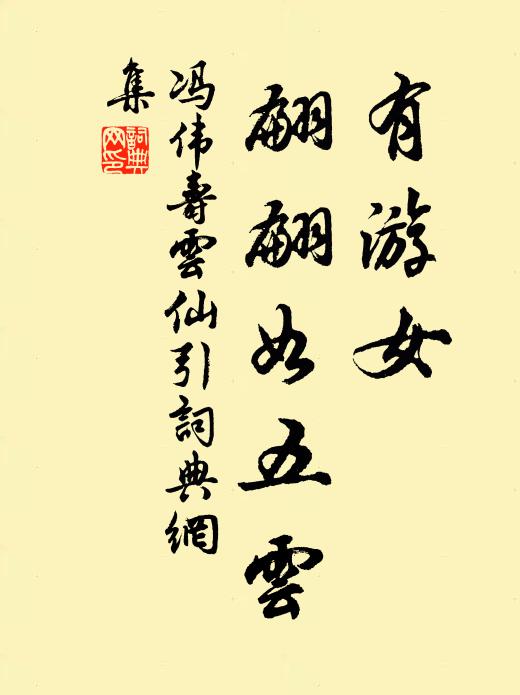 有游女
翩翩如五雲
冯伟壽雲仙引詞典網
集
詞典网印